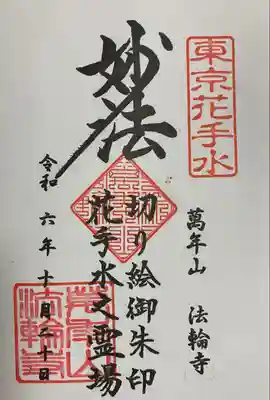 東京花手水
萬年山 法輪寺
妙法
切り絵御朱印
花手水之霊場
令和 六年 十月二十日